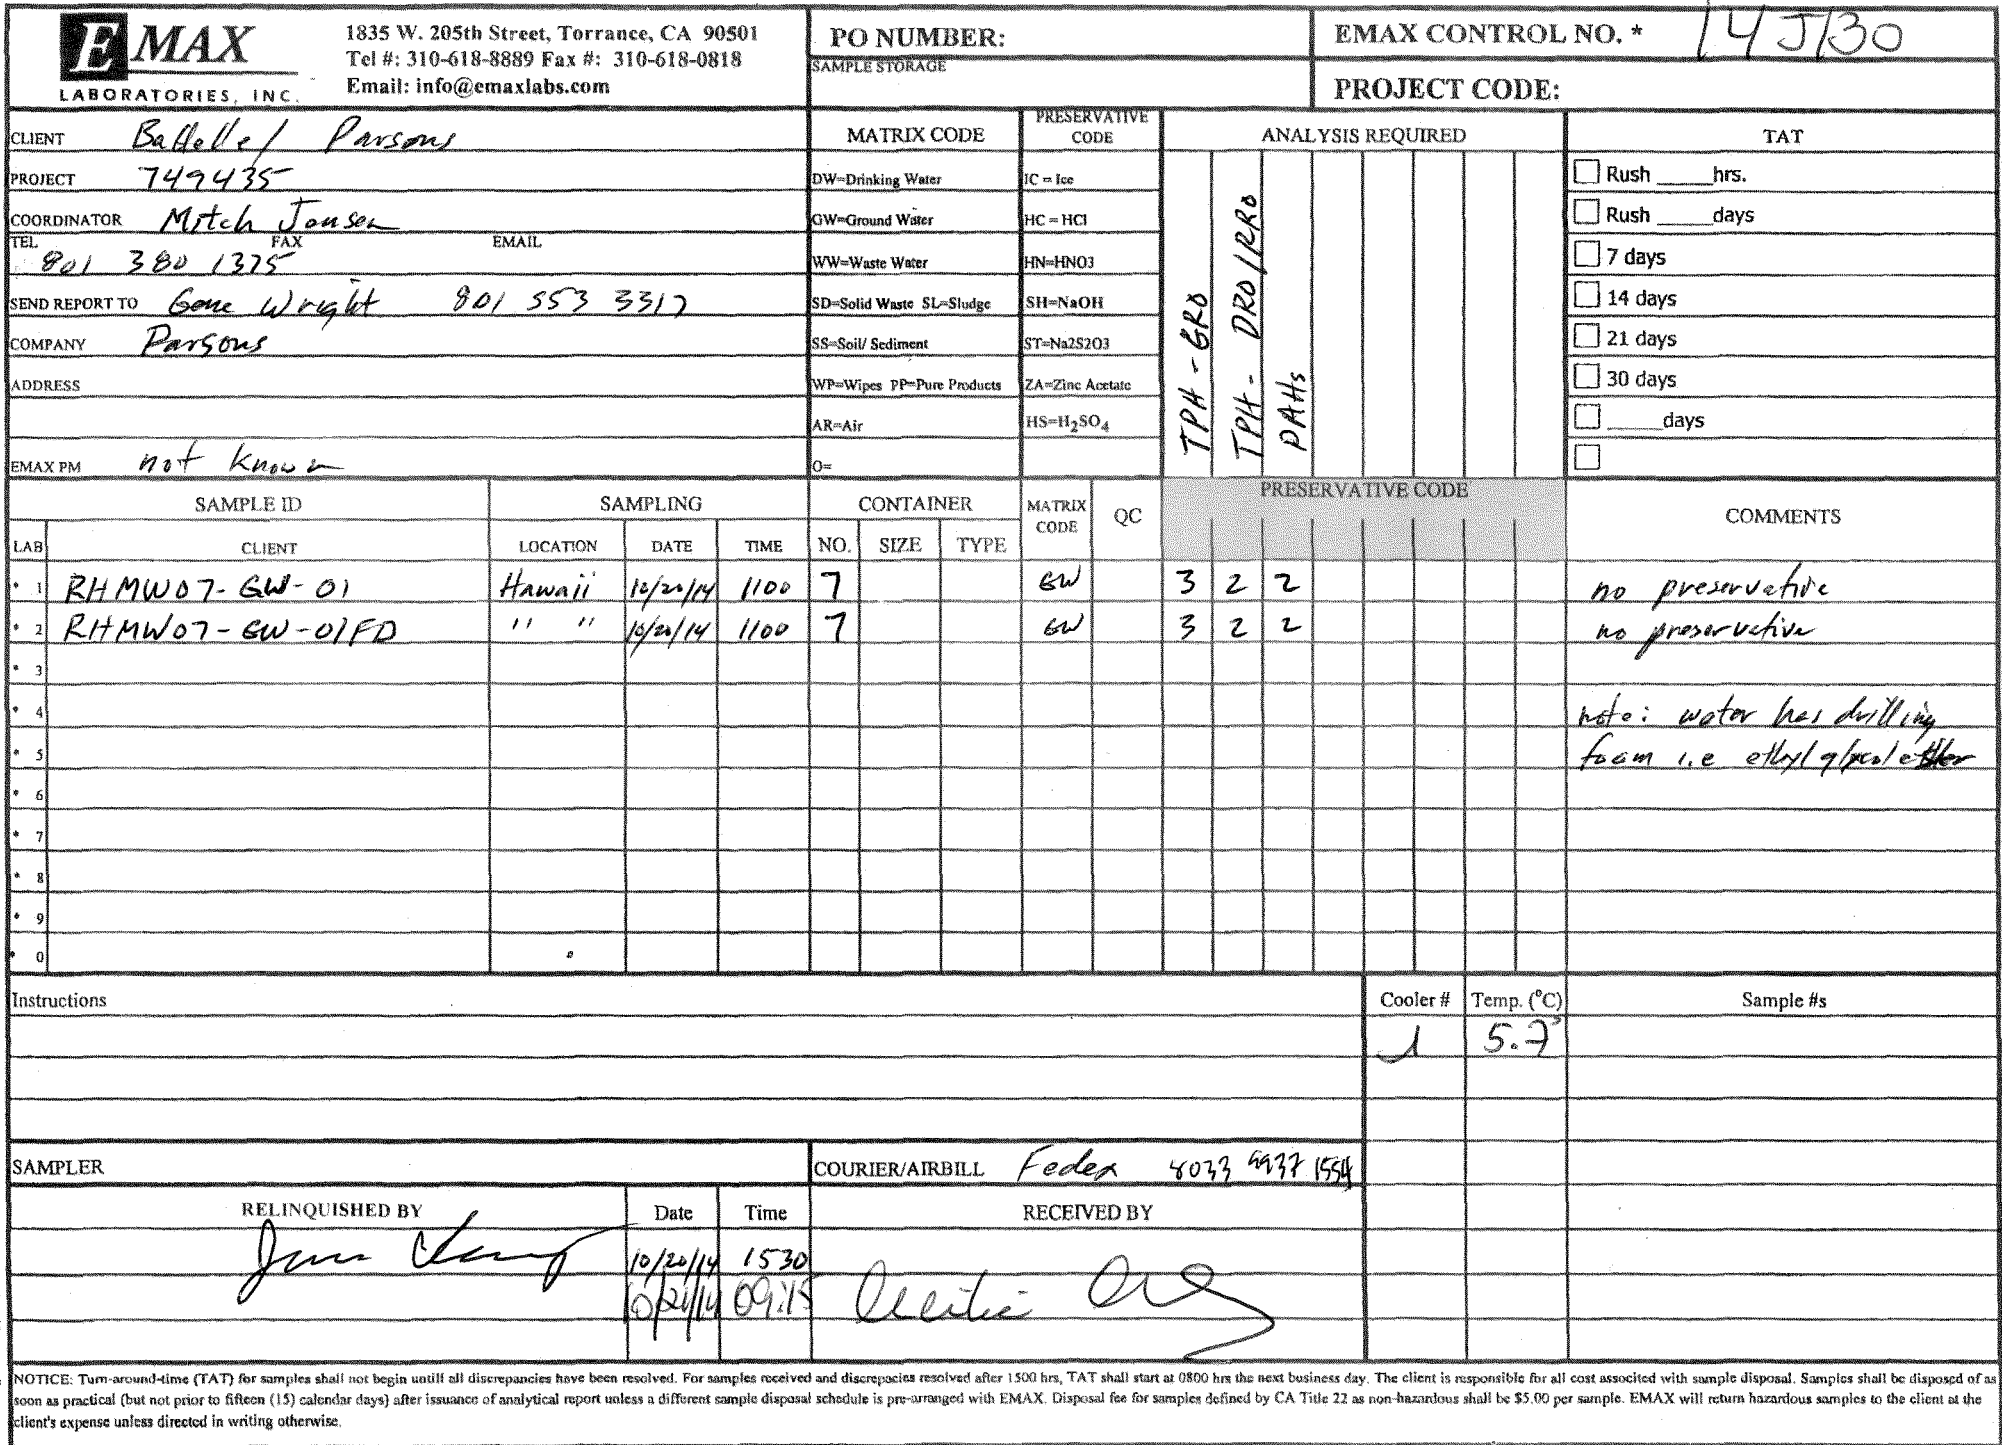 EMAX
LABORATORIES, INC.
1835 W. 205th Street, Torrance, CA 90501
Tel #: 310-618-8889 Fax #: 310-618-0818
Email: info@emaxlabs.com
PO NUMBER:
SAMPLE STORAGE
EMAX CONTROL NO. * 14J130
PROJECT CODE:
CLIENT Battelle / Parsons
PROJECT 749435
COORDINATOR Mitch Jensen
TEL FAX EMAIL
801 380 1375
SEND REPORT TO Gene Wright 801 553 3317
COMPANY Parsons
ADDRESS
EMAX PM not known
MATRIX CODE
DW=Drinking Water
GW=Ground Water
WW=Waste Water
SD=Solid Waste SL=Sludge
SS=Soil/ Sediment
WP=Wipes PP=Pure Products
AR=Air
O=
PRESERVATIVE CODE
IC = Ice
HC = HCl
HN=HNO3
SH=NaOH
ST=Na2S2O3
ZA=Zinc Acetate
HS=H2SO4
ANALYSIS REQUIRED
TPH - GRO
TPH - DRO/RRO
PAHs
TAT
Rush _____hrs.
Rush _____days
7 days
14 days
21 days
30 days
_____days
SAMPLE ID SAMPLING CONTAINER MATRIX CODE QC PRESERVATIVE CODE COMMENTS
LAB CLIENT LOCATION DATE TIME NO. SIZE TYPE
* 1 RHMW07-GW-01 Hawaii 10/20/14 1100 7 GW 3 2 2 no preservative
* 2 RHMW07-GW-01FD " " 10/20/14 1100 7 GW 3 2 2 no preservative
* 3
* 4 note: water has drilling
* 5 foam i.e ethyl glycol ether
* 6
* 7
* 8
* 9
* 0
Instructions
Cooler # Temp. (°C) Sample #s
1 5.7
SAMPLER
COURIER/AIRBILL Fedex 8033 9937 1554
RELINQUISHED BY Date Time RECEIVED BY
10/20/14 1530
10/21/14 09:15
NOTICE: Turn-around-time (TAT) for samples shall not begin untill all discrepancies have been resolved. For samples received and discrepacies resolved after 1500 hrs, TAT shall start at 0800 hrs the next business day. The client is responsible for all cost associted with sample disposal. Samples shall be disposed of as
soon as practical (but not prior to fifteen (15) calendar days) after issuance of analytical report unless a different sample disposal schedule is pre-arranged with EMAX. Disposal fee for samples defined by CA Title 22 as non-hazardous shall be $5.00 per sample. EMAX will return hazardous samples to the client at the
client's expense unless directed in writing otherwise.